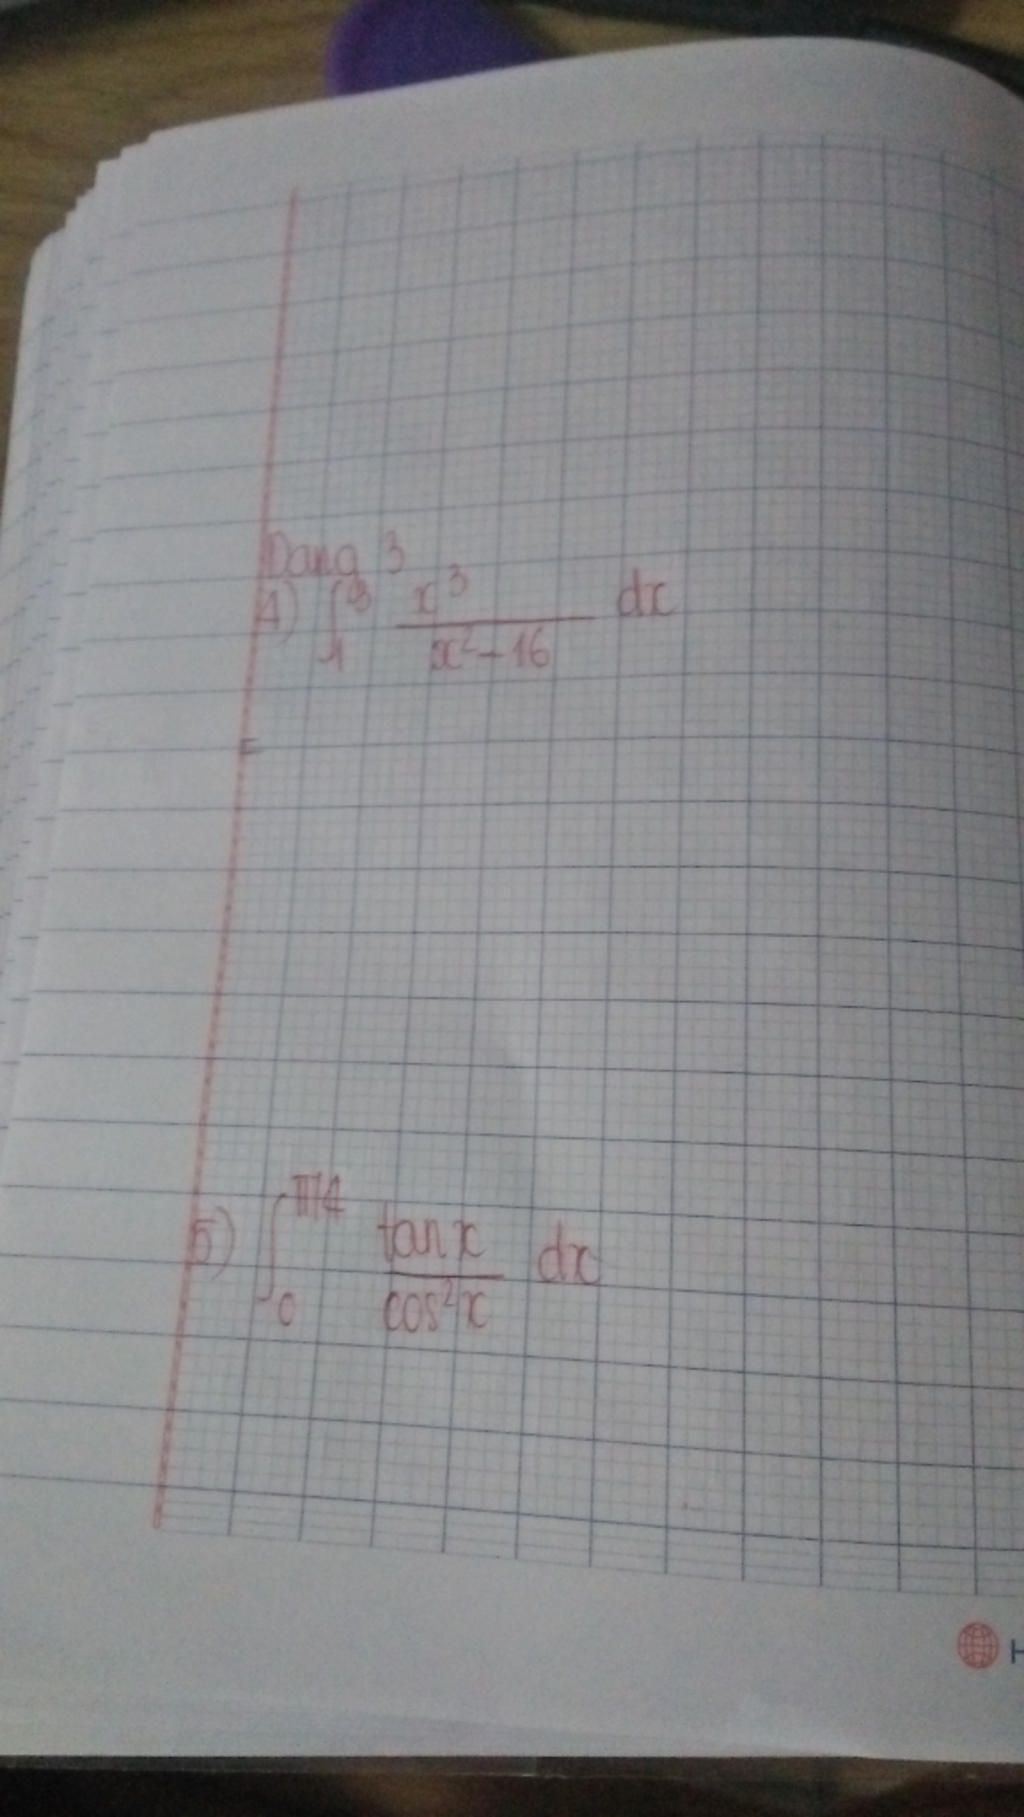 Dạng 3
4) ∫₁³ x³/(x²-16) dx
=
5) ∫₀^(π/4) tanx/cos²x dx
H